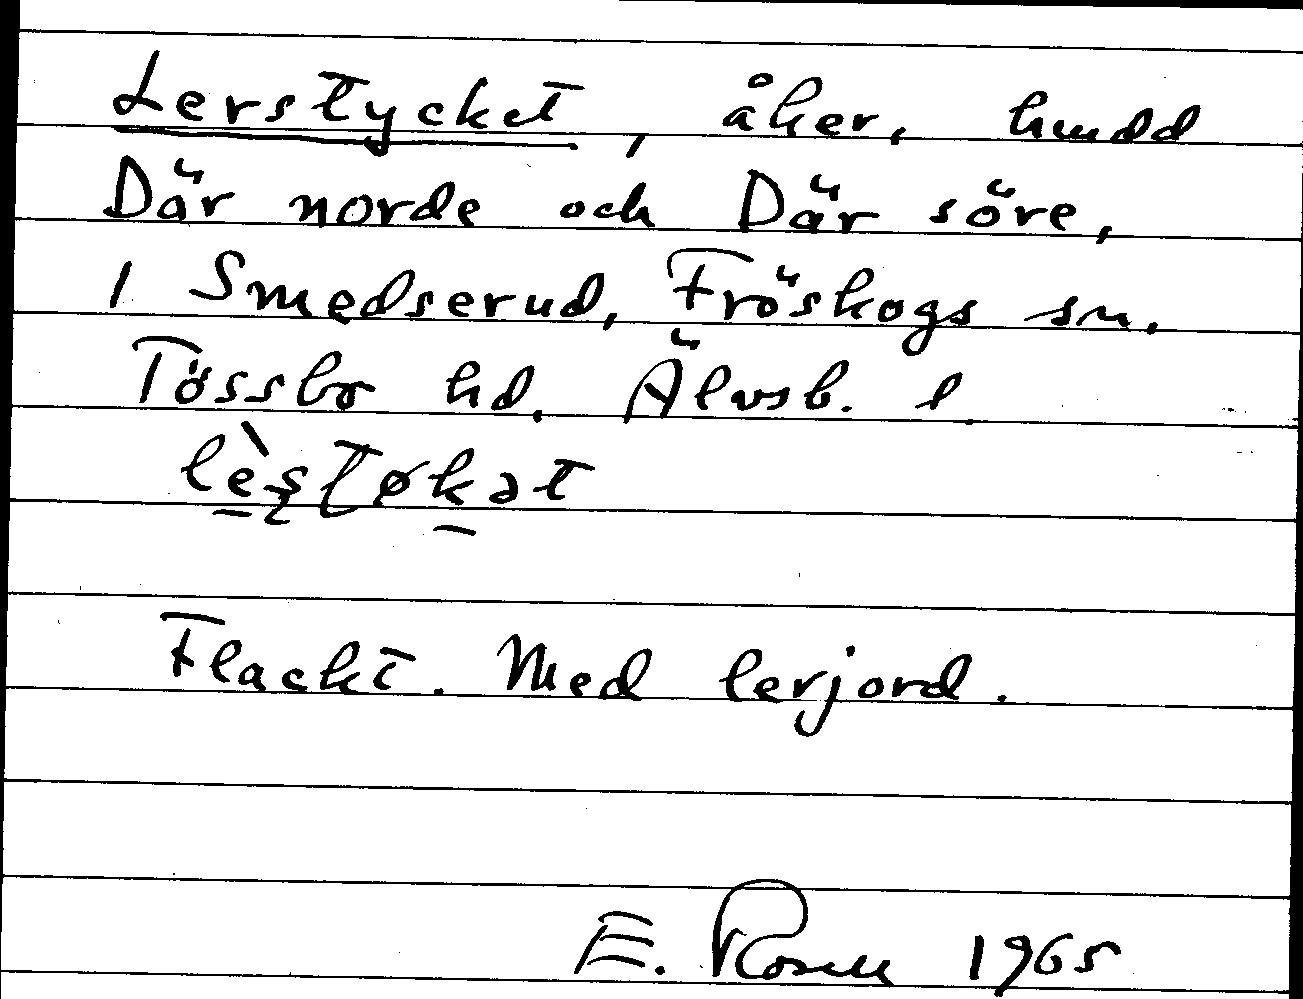 Lerstycket, åker, hmdd
Där norde och Där söre,
1 Smedserud, Fröskogs sn.
Tössbo hd. Älvsb. l
Flackt. Med lerjord.
E. Rosell 1965